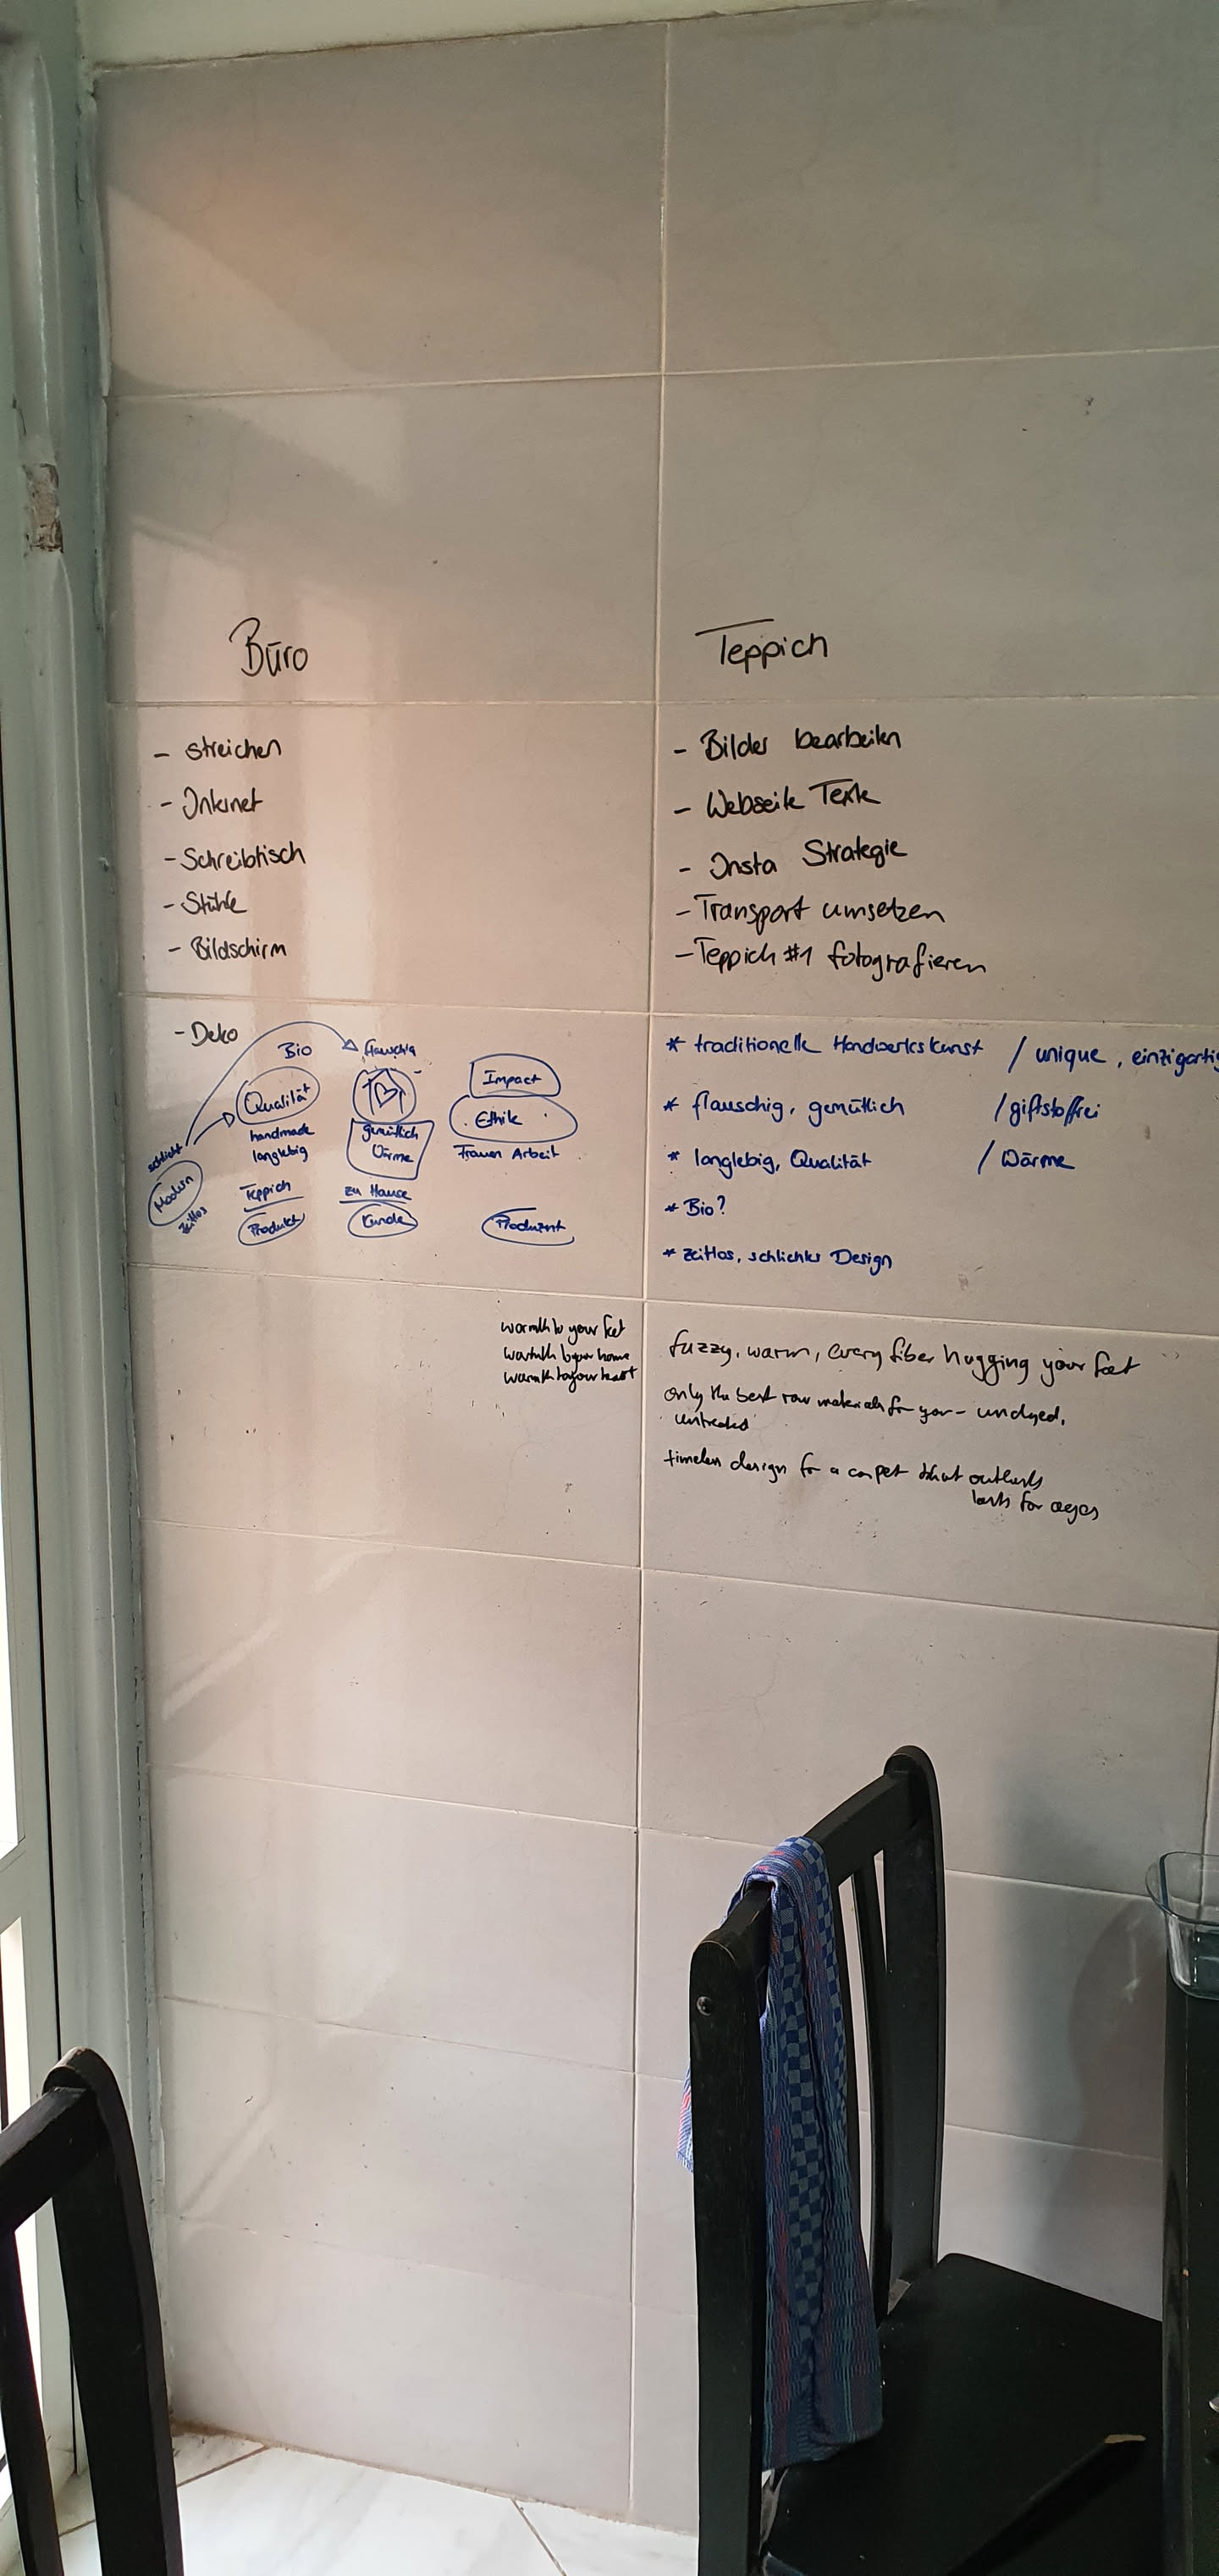 Büro
- streichen
- Internet
- Schreibtisch
- Stühle
- Bildschirm
- Deko
Teppich
- Bilder bearbeiten
- Webseite Texte
- Insta Strategie
- Transport umsetzen
- Teppich #1 fotografieren
Bio
flauschig
Impact
Qualität
Ethik
handmade
langlebig
gemütlich
Wärme
Frauen Arbeit
schlicht
Modern
zeitlos
Teppich
zu Hause
Produkt
Kunde
Produzent
* traditionelle Handwerkskunst / unique, einzigartig
* flauschig, gemütlich / giftstoffrei
* langlebig, Qualität / Wärme
* Bio?
* zeitlos, schlichtes Design
warmth to your feet
warmth to your home
warmth to your heart
fuzzy, warm, every fiber hugging your feet
only the best raw materials for you - undyed,
untreated
timeless design for a carpet that outlasts
lasts for ages